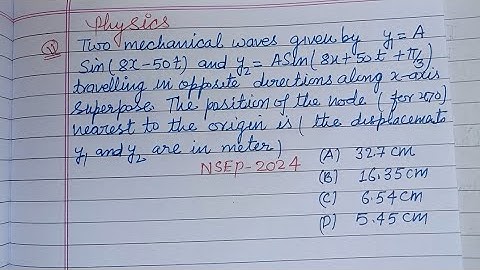 Physics
Q Two mechanical waves given by y₁ = A
Sin(8x-50t) and y₂ = ASin(8x+50t+π/3)
travelling in opposite directions along x-axis
Superpose. The position of the node (for x>0)
nearest to the origin is (the displacemats
y₁ and y₂ are in meter)
NSEP-2024
(A) 32.7 cm
(B) 16.35 cm
(C) 6.54 cm
(D) 5.45 cm